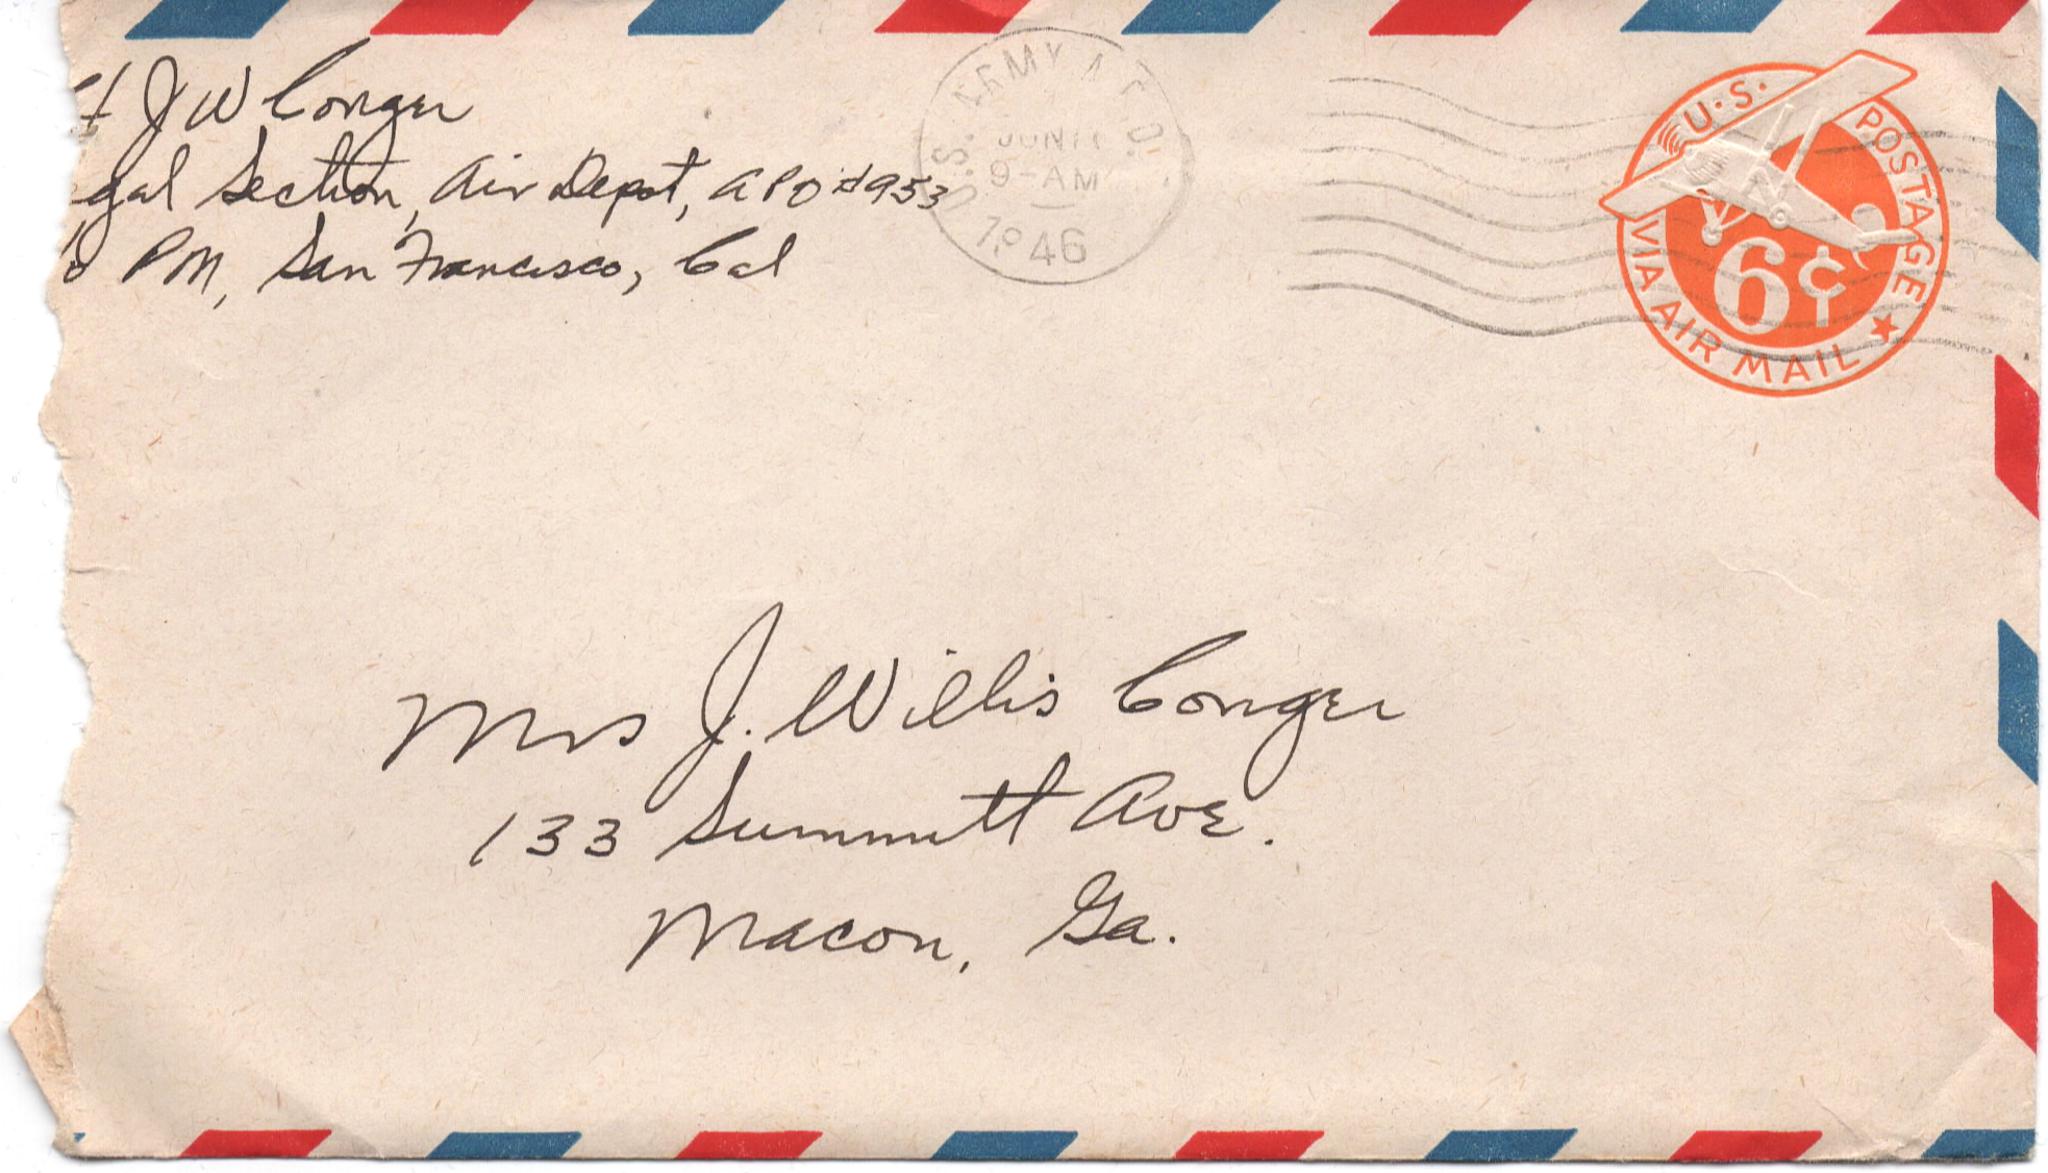 J W Conger
gal Section, Air Depot, APO #953
PM, San Francisco, Cal
U.S. ARMY A.P.O.
JUN 11
9-AM
1946
U.S. POSTAGE
6¢
VIA AIR MAIL
Mrs J. Willis Conger
133 Summitt Ave.
Macon, Ga.